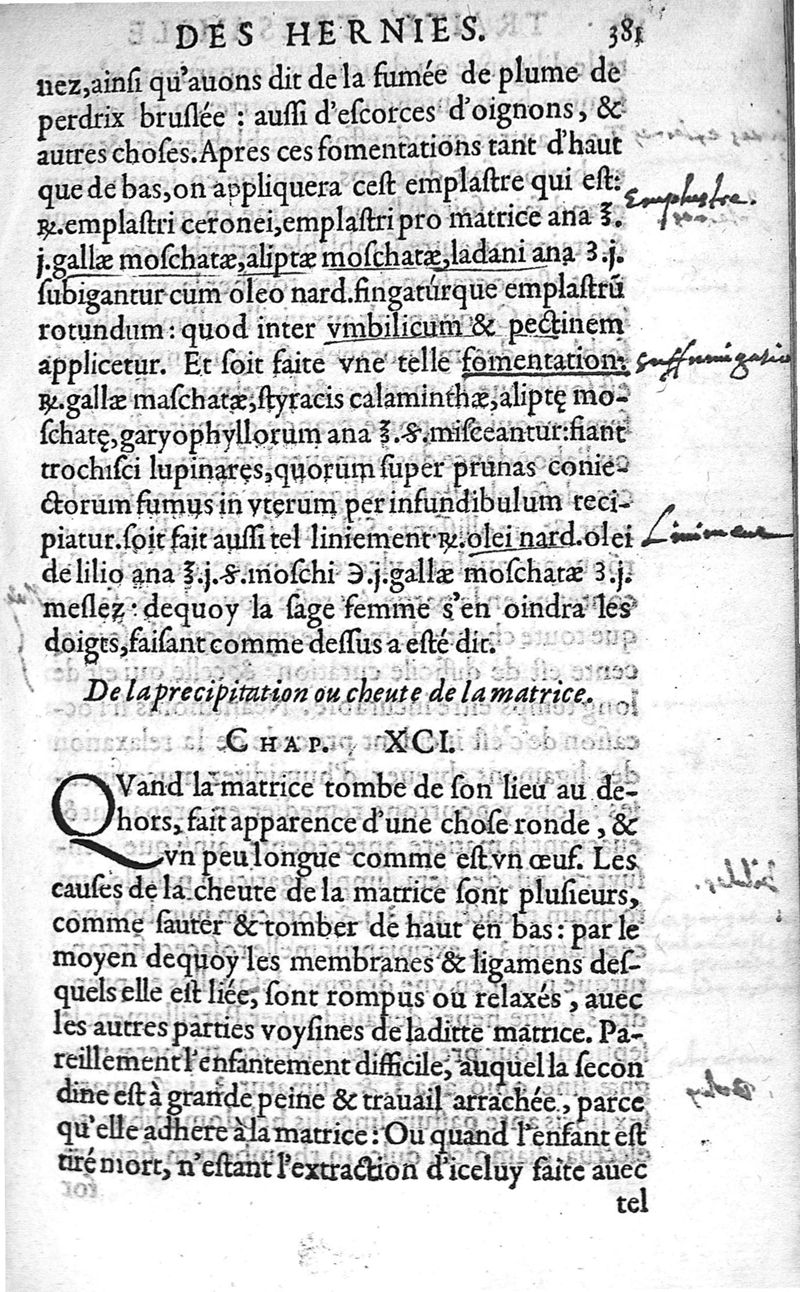 DES HERNIES. 381
nez,ainſi qu'auons dit de la fumée de plume de
perdrix bruſlée : auſſi d'eſcorces d'oignons, &
autres choſes.Apres ces fomentations tant d'haut
que de bas,on appliquera ceſt emplaſtre qui eſt:
Emplastre.
℞.emplaſtri ceronei,emplaſtri pro matrice ana ℥.
j.gallæ moſchatæ,aliptæ moſchatæ,ladani ana ʒ.j.
ſubigantur cum oleo nard.fingatúrque emplaſtrū
rotundum: quod inter vmbilicum & pectinem
applicetur. Et ſoit faite vne telle fomentation:
suffumigatio
℞.gallæ maſchatæ,ſtyracis calaminthæ,aliptę mo-
ſchatę,garyophyllorum ana ℥.ß.miſceantur:fiant
trochiſci lupinares,quorum ſuper prunas conie-
ctorum fumus in vterum per infundibulum reci-
piatur.ſoit fait auſſi tel liniement ℞.olei nard.olei
Liniment
de lilio ana ℥.j.ß.moſchi ℈.j.gallæ moſchatæ ʒ.j.
meſlez : dequoy la ſage femme s'en oindra les
doigts,faiſant comme deſſus a eſté dit.
De la precipitation ou cheute de la matrice.
CHAP. XCI.
QVand la matrice tombe de ſon lieu au de-
hors, fait apparence d'une choſe ronde , &
vn peu longue comme eſt vn œuf. Les
cauſes de la cheute de la matrice ſont pluſieurs,
comme ſauter & tomber de haut en bas : par le
moyen dequoy les membranes & ligamens deſ-
quels elle eſt liée, ſont rompus ou relaxés , auec
les autres parties voyſines de laditte matrice. Pa-
reillement l'enfantement difficile, auquel la ſecon
dine eſt à grande peine & trauail arrachée , parce
qu'elle adhere à la matrice : Ou quand l'enfant eſt
tiré mort, n'eſtant l'extraction d'iceluy faite auec
tel